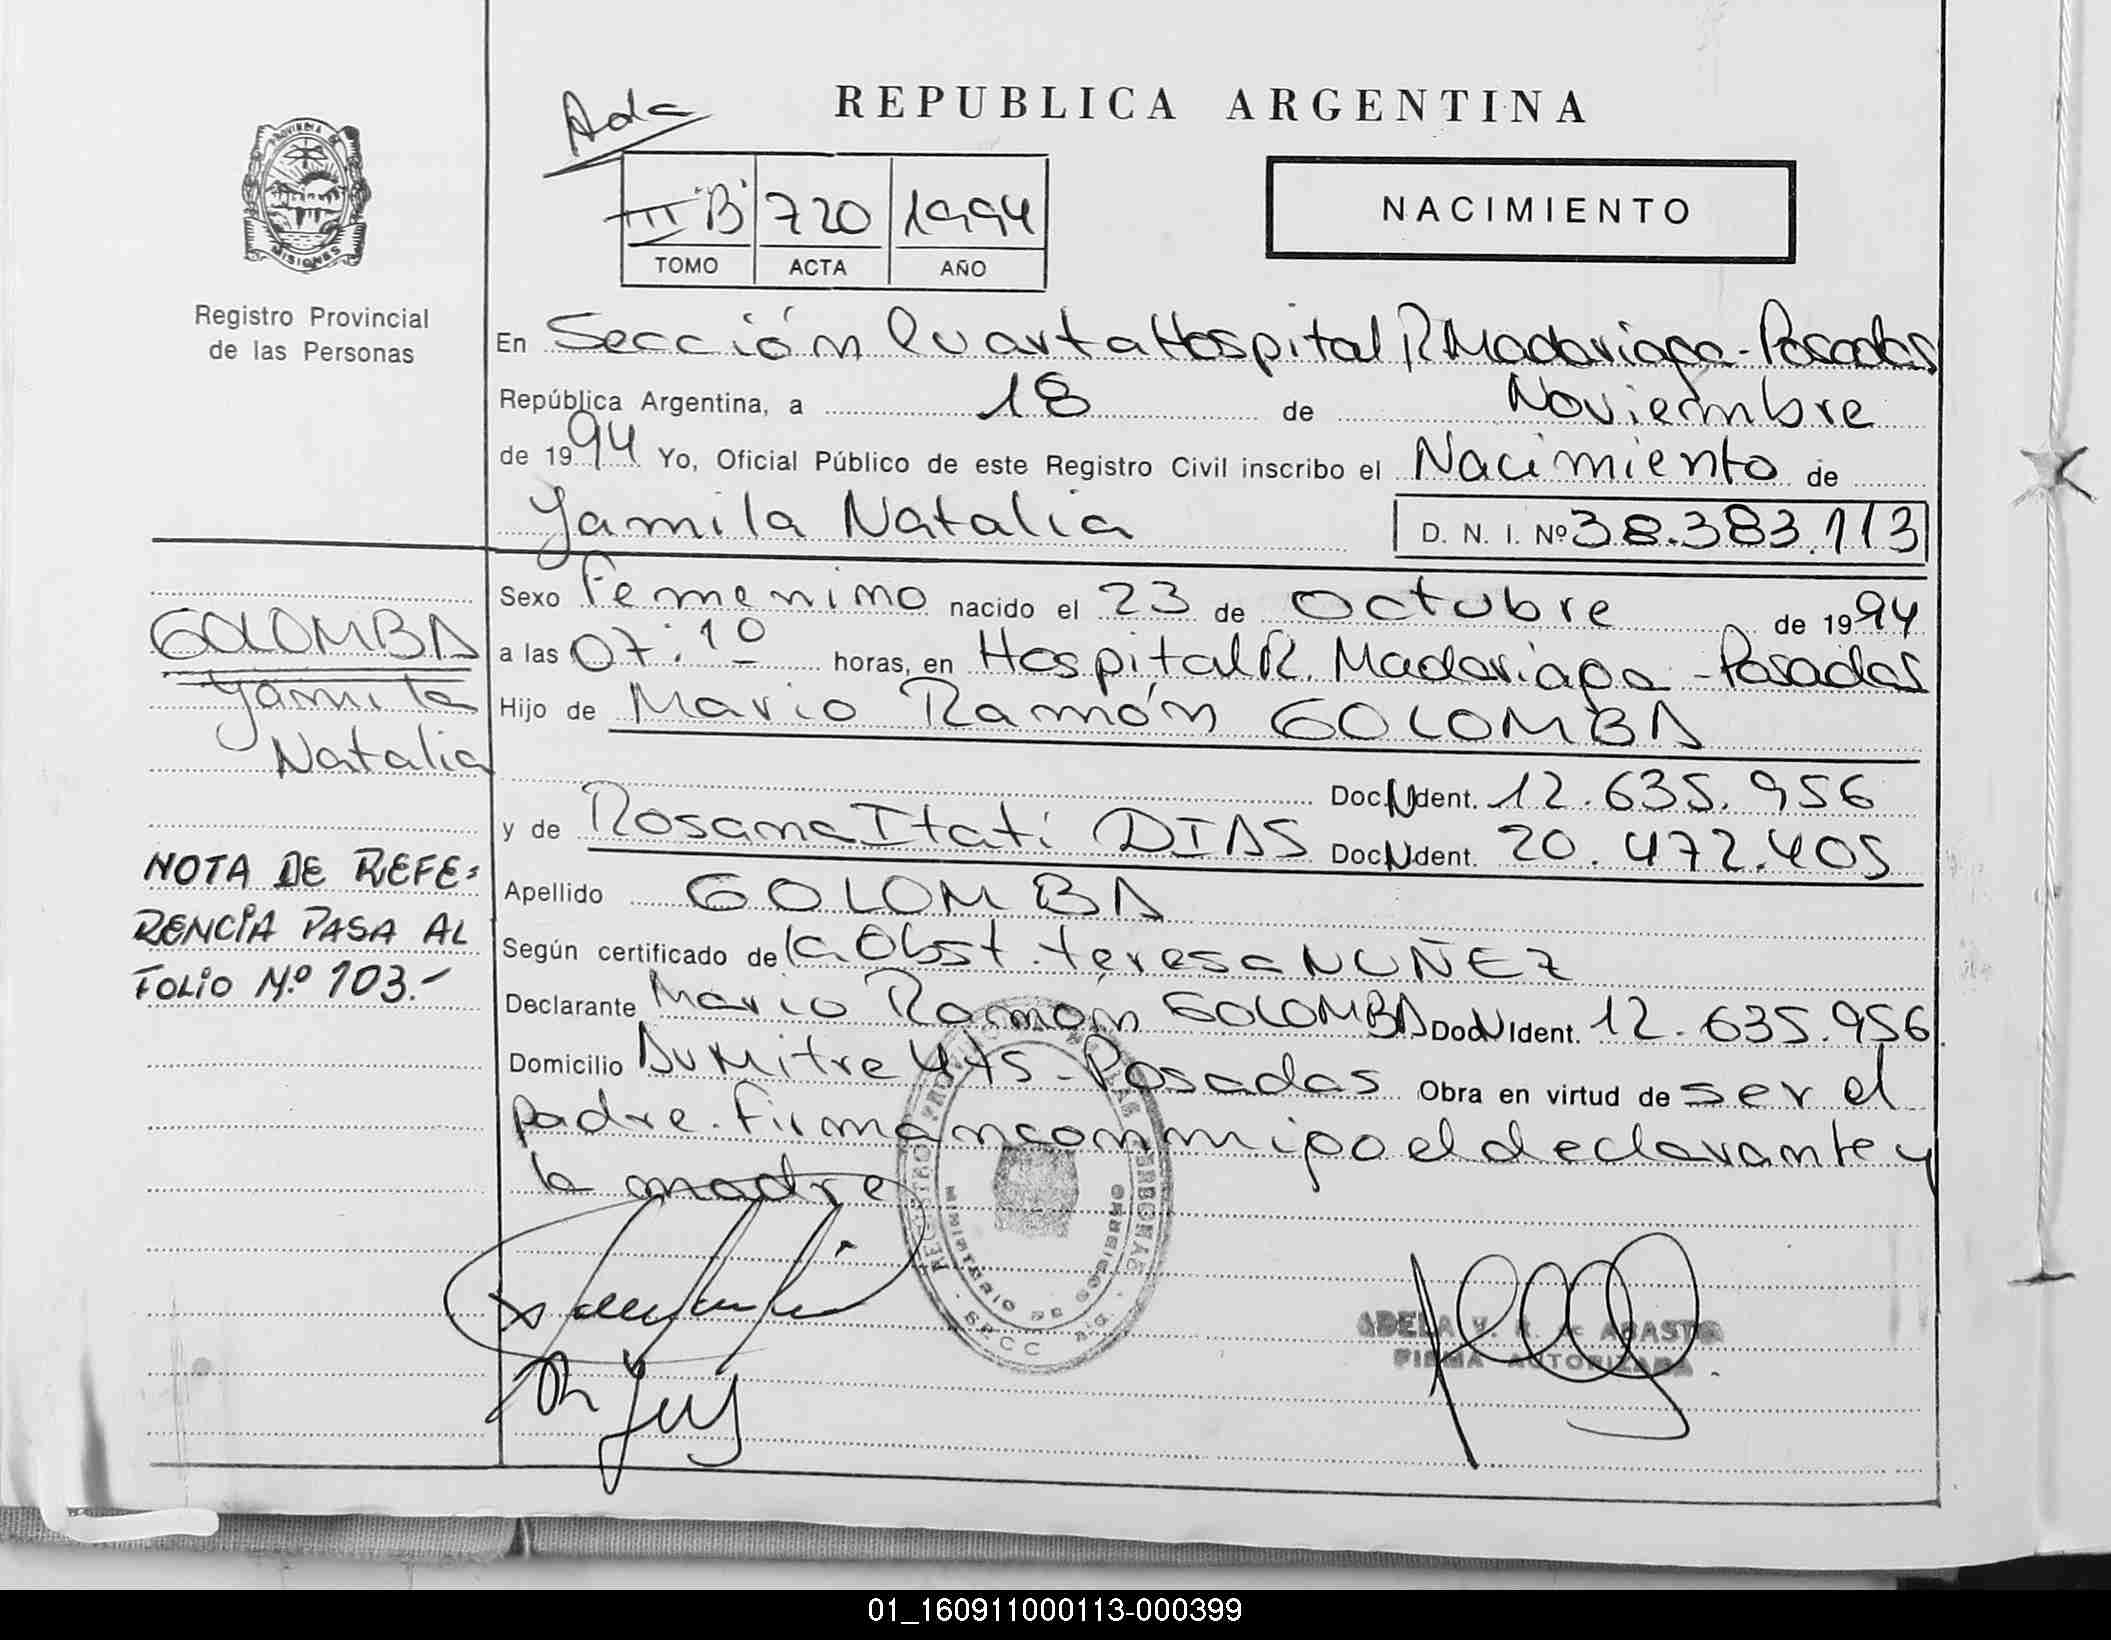 REPUBLICA ARGENTINA
Ada
III "B" 720 1994
TOMO ACTA AÑO
NACIMIENTO
PROVINCIA DE
MISIONES
Registro Provincial
de las Personas
En Sección Cuarta Hospital R Madariaga - Posadas
República Argentina, a 18 de Noviembre
de 1994 Yo, Oficial Público de este Registro Civil inscribo el Nacimiento de
Yamila Natalia D. N. I. Nº 38.383.113
Sexo Femenino nacido el 23 de Octubre de 1994
a las 07:10 horas, en Hospital R. Madariaga - Posadas
Hijo de Mario Ramón GOLOMBA
Doc. N Ident. 12.635.956
y de Rosana Itatí DIAS Doc. N Ident. 20.472.405
Apellido GOLOMBA
Según certificado de la Obst. teresa NUÑEZ
Declarante Mario Ramón GOLOMBA Doc N Ident. 12.635.956
Domicilio Av Mitre 475 - Posadas Obra en virtud de ser el
padre. Firman conmigo el declarante y
la madre
GOLOMBA
Yamila
Natalia
NOTA DE REFE=
RENCIA PASA AL
FOLIO Nº 103.-
REGISTRO PROVINCIAL DE LAS PERSONAS
MINISTERIO DE GOBIERNO
ADELA V. R. de ACASTO
FIRMA AUTORIZADA
01_160911000113-000399